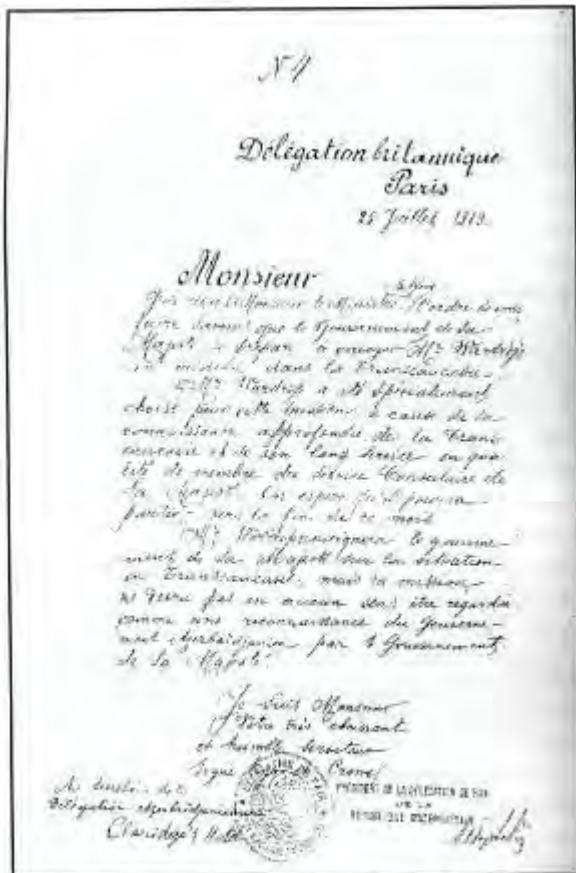 N 4
Délégation britannique
Paris
25 Juillet 1919
Monsieur
le Ministre l'ordre de vous
faire que le Gouvernement de Sa
Majesté à envoyer Mr. Wardrop
en mission dans la Transcaucasie
Mr. Wardrop a été spécialement
choisi pour cette à cause de la
connaissance approfondie de la Trans
caucasie et de son long service en qua
lité de membre du service Consulaire de
Sa Majesté. On espère qu'il pourra
vers la fin de ce mois
Mr. le gouverne
ment de Sa Majesté sur la situation
en Transcaucasie, mais sa mission
ne devra pas en aucun sens être regardée
comme une reconnaissance du Gouverne
ment par le Gouvernement
de Sa Majesté.
Je suis Monsieur
Votre très obéissant
et humble serviteur
signé
Délégation
Claridge's Hotel
PRÉSIDENT DE LA DÉLÉGATION DE PAIX
DE LA
RÉPUBLIQUE D'AZERBAIDJAN